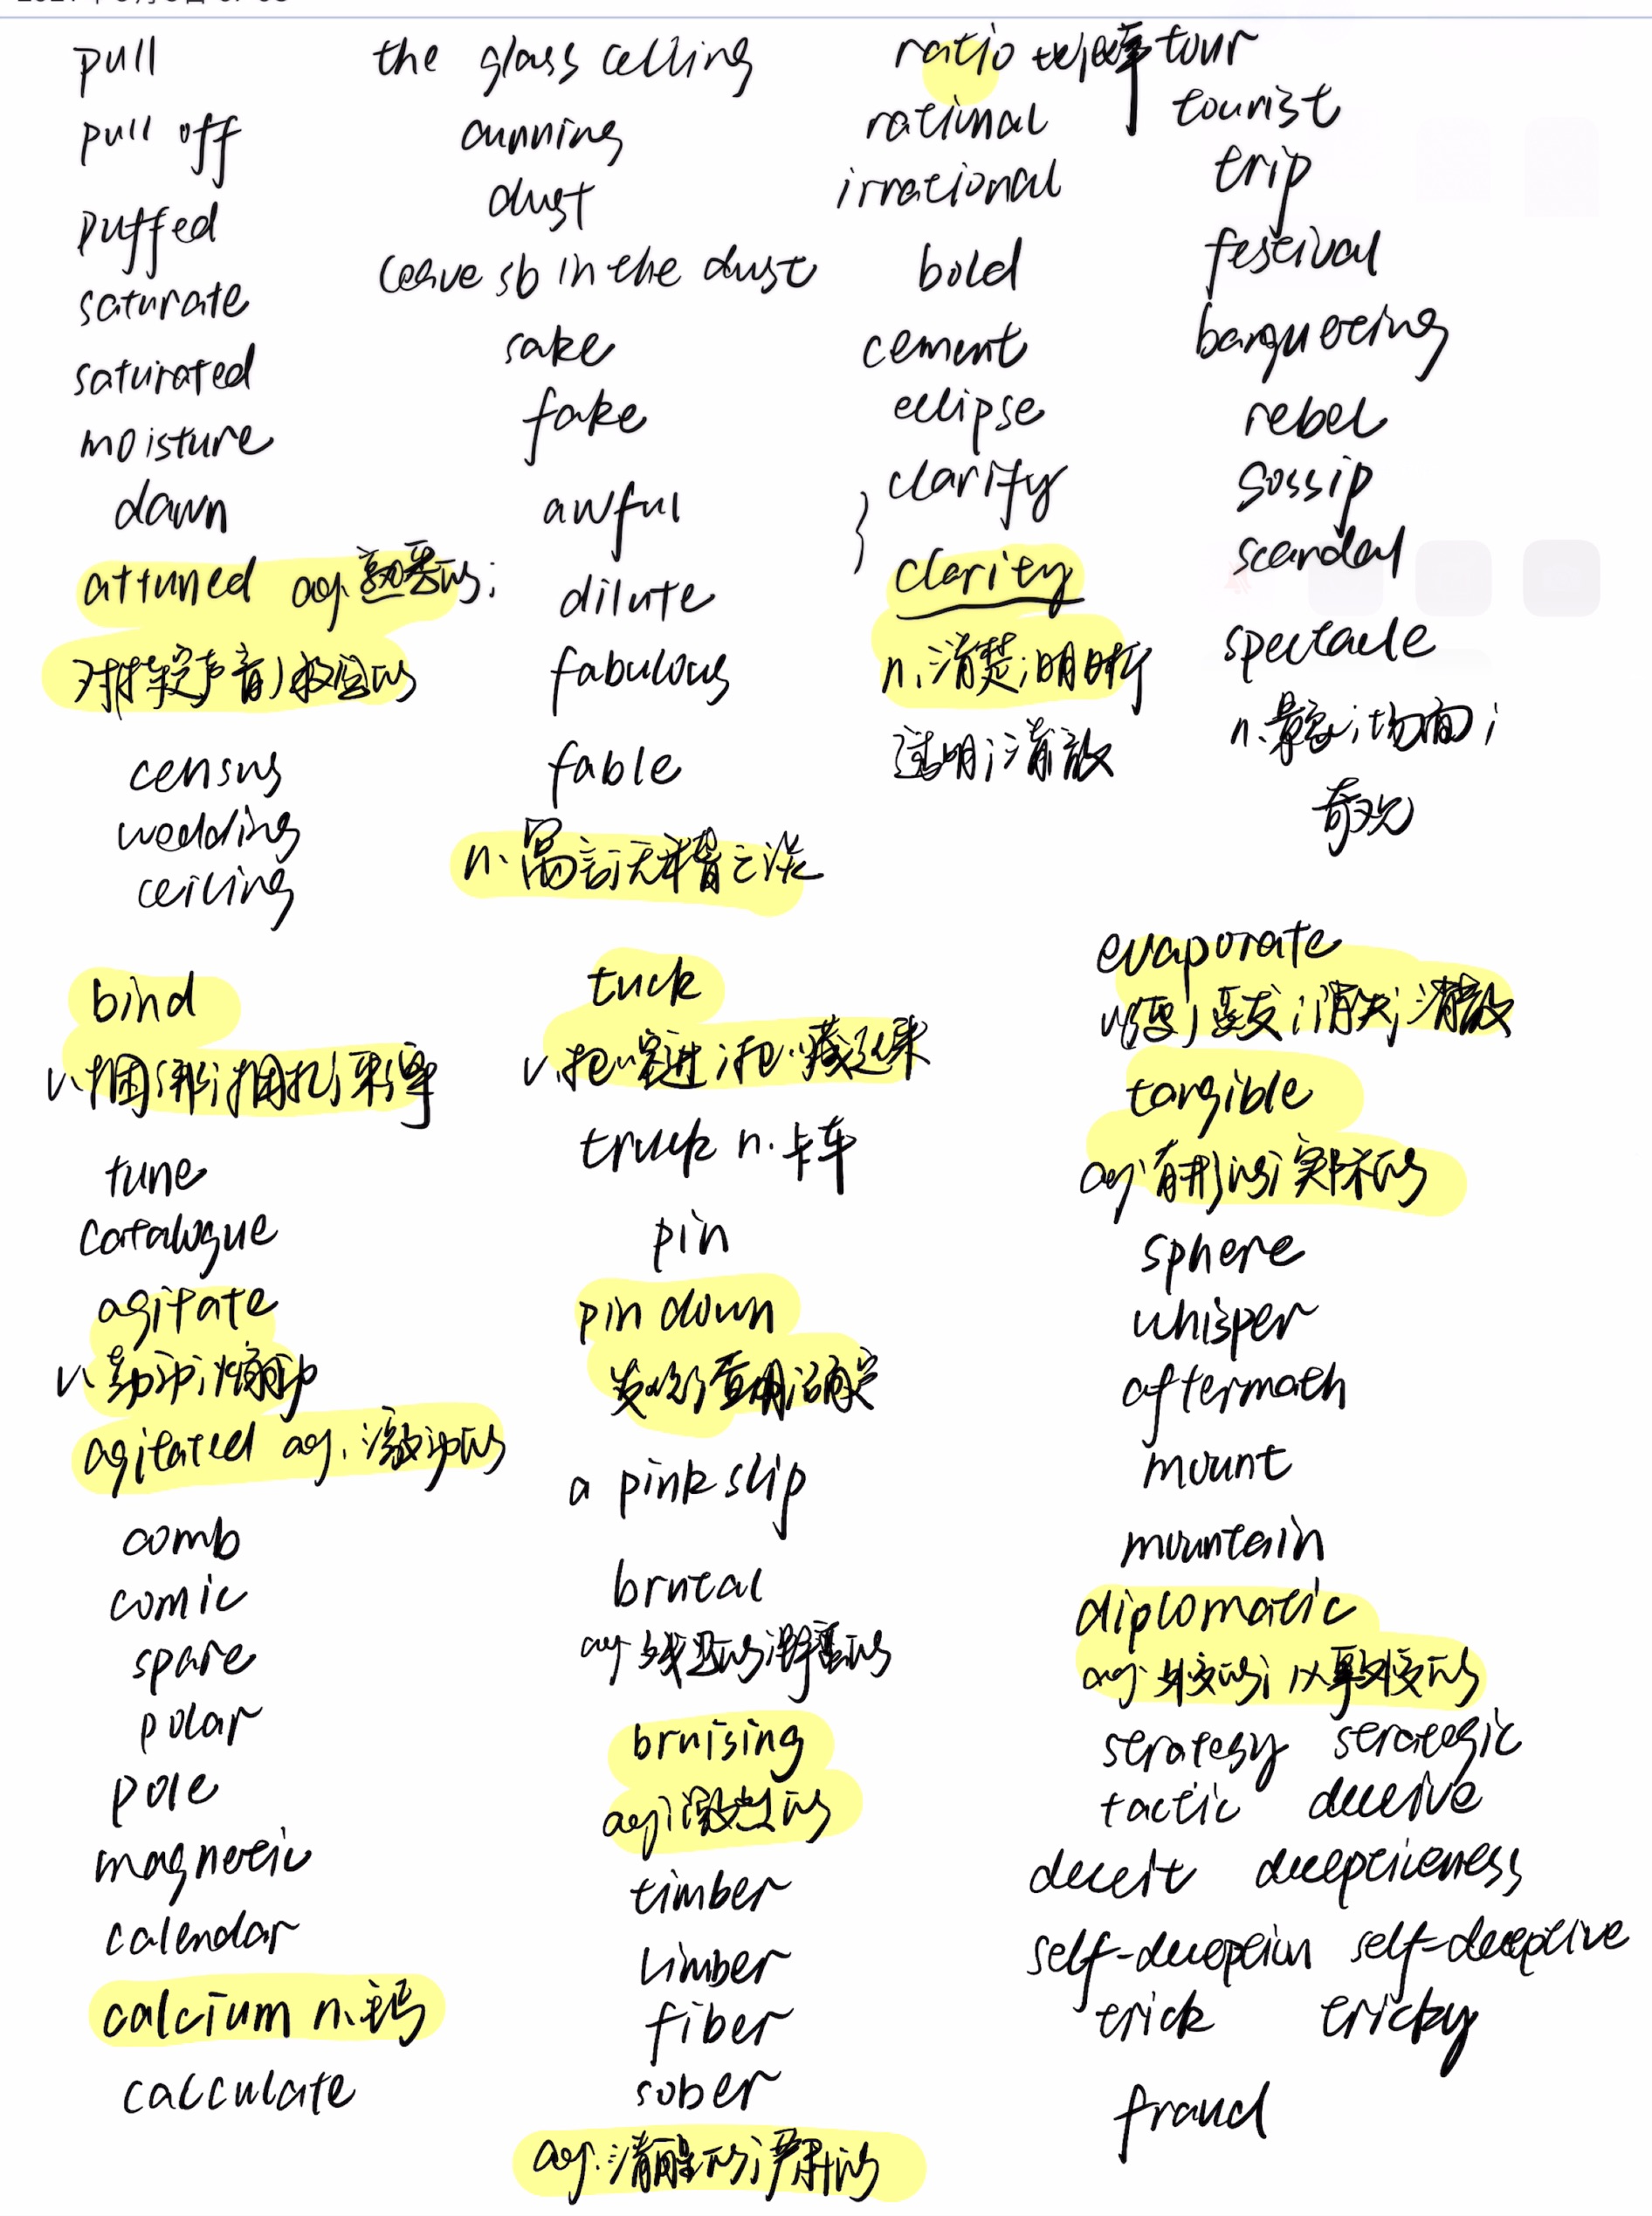 pull
pull off
puffed
saturate
saturated
moisture
dawn
attuned adj.熟悉的;
census
wedding
ceiling
the glass celling
cunning
dust
leave sb in the dust
sake
fake
awful
dilute
fabulous
fable
n.寓言;无稽之谈
ratio 比率
rational
irrational
bold
cement
ellipse
clarify
clarity
n.清楚;明晰
透明;清澈
tour
tourist
trip
festival
banqueting
rebel
gossip
scandal
spectacle
n.景象;场面;
奇观
bind
v.捆绑;捆扎;束缚
tune
catalogue
agitate
v.煽动
agitated adj.激动的
comb
comic
spare
polar
pole
magnetic
calendar
calcium n.钙
calculate
tuck
v.把…塞进;把…藏起来
truck n.卡车
pin
pin down
查明;确定
a pink slip
brutal
adj.残忍的;严重的
bruising
adj.激烈的
timber
limber
fiber
sober
adj.清醒的;严肃的
evaporate
蒸发;消失;消散
tangible
adj.有形的;实际的
sphere
whisper
aftermath
mount
mountain
diplomatic
adj.外交的;
strategy strategic
tactic deceive
deceit deceptiveness
self-deception self-deceptive
trick tricky
fraud